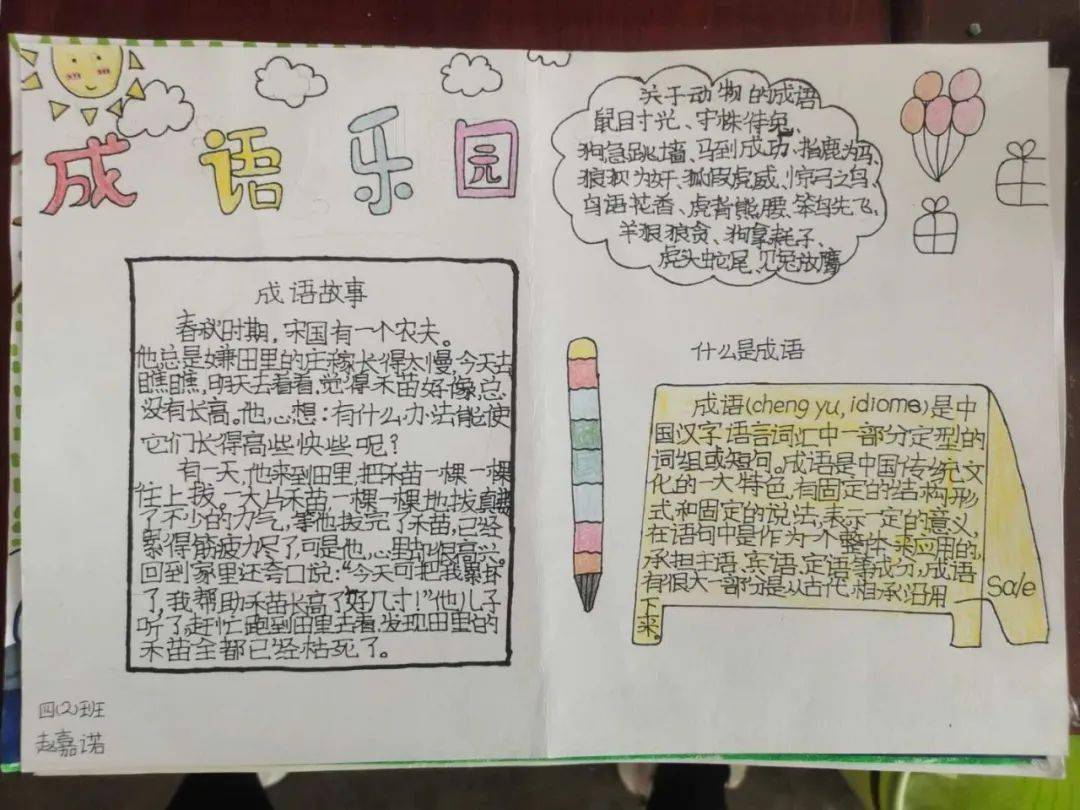 成语乐园
成语故事
春秋时期，宋国有一个农夫。
他总是嫌田里的庄稼长得太慢，今天去
瞧瞧，明天去看看，觉得禾苗好像总
没有长高。他心想：有什么办法能使
它们长得高些快些呢？
有一天，他来到田里，把禾苗一棵一棵
往上拔。一大片禾苗，一棵一棵地拔真
了不少的力气，等他拔完了禾苗，已经
累得筋疲力尽了，可是他心里却很高兴。
回到家里还夸口说：“今天可把我累坏
了，我帮助禾苗长高了好几寸！”他儿子
听了，赶忙跑到田里去看，发现田里的
禾苗全都已经枯死了。
四(2)班
赵嘉诺
关于动物的成语
鼠目寸光、守株待兔、
狗急跳墙、马到成功、指鹿为马、
狼狈为奸、狐假虎威、惊弓之鸟、
鸟语花香、虎背熊腰、笨鸟先飞、
羊狠狼贪、狗拿耗子、
虎头蛇尾、见兔放鹰
什么是成语
成语(cheng yu, idioms)是中
国汉字语言词汇中一部分定型的
词组或短句。成语是中国传统文
化的一大特色，有固定的结构形
式和固定的说法，表示一定的意义，
在语句中是作为一个整体来应用的，
承担主语、宾语、定语等成分，成语
有很大一部分是从古代相承沿用
下来。
Sale